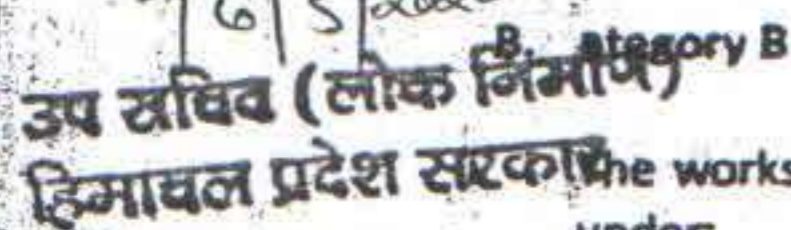 6 5
B. ategory B
उप सचिव (लोक निर्माण)
हिमाचल प्रदेश सरकार
the works
under: